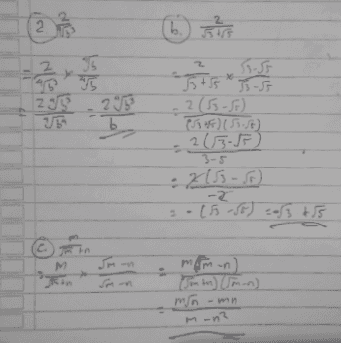 2 2/∜b³
= 2/∜b³ × ∜b/∜b
= 2∜b/∜b⁴ = 2∜b/b
b. 2/√3+√5
= 2/√3+√5 × √3-√5/√3-√5
= 2(√3-√5)/(√3+√5)(√3-√5)
= 2(√3-√5)/3-5
= 2(√3-√5)/-2
= -(√3-√5) = -√3+√5
c m/√m+n
= m/√m+n × √m-n/√m-n = m(√m-n)/(√m+n)(√m-n)
= m√m-mn/m-n²